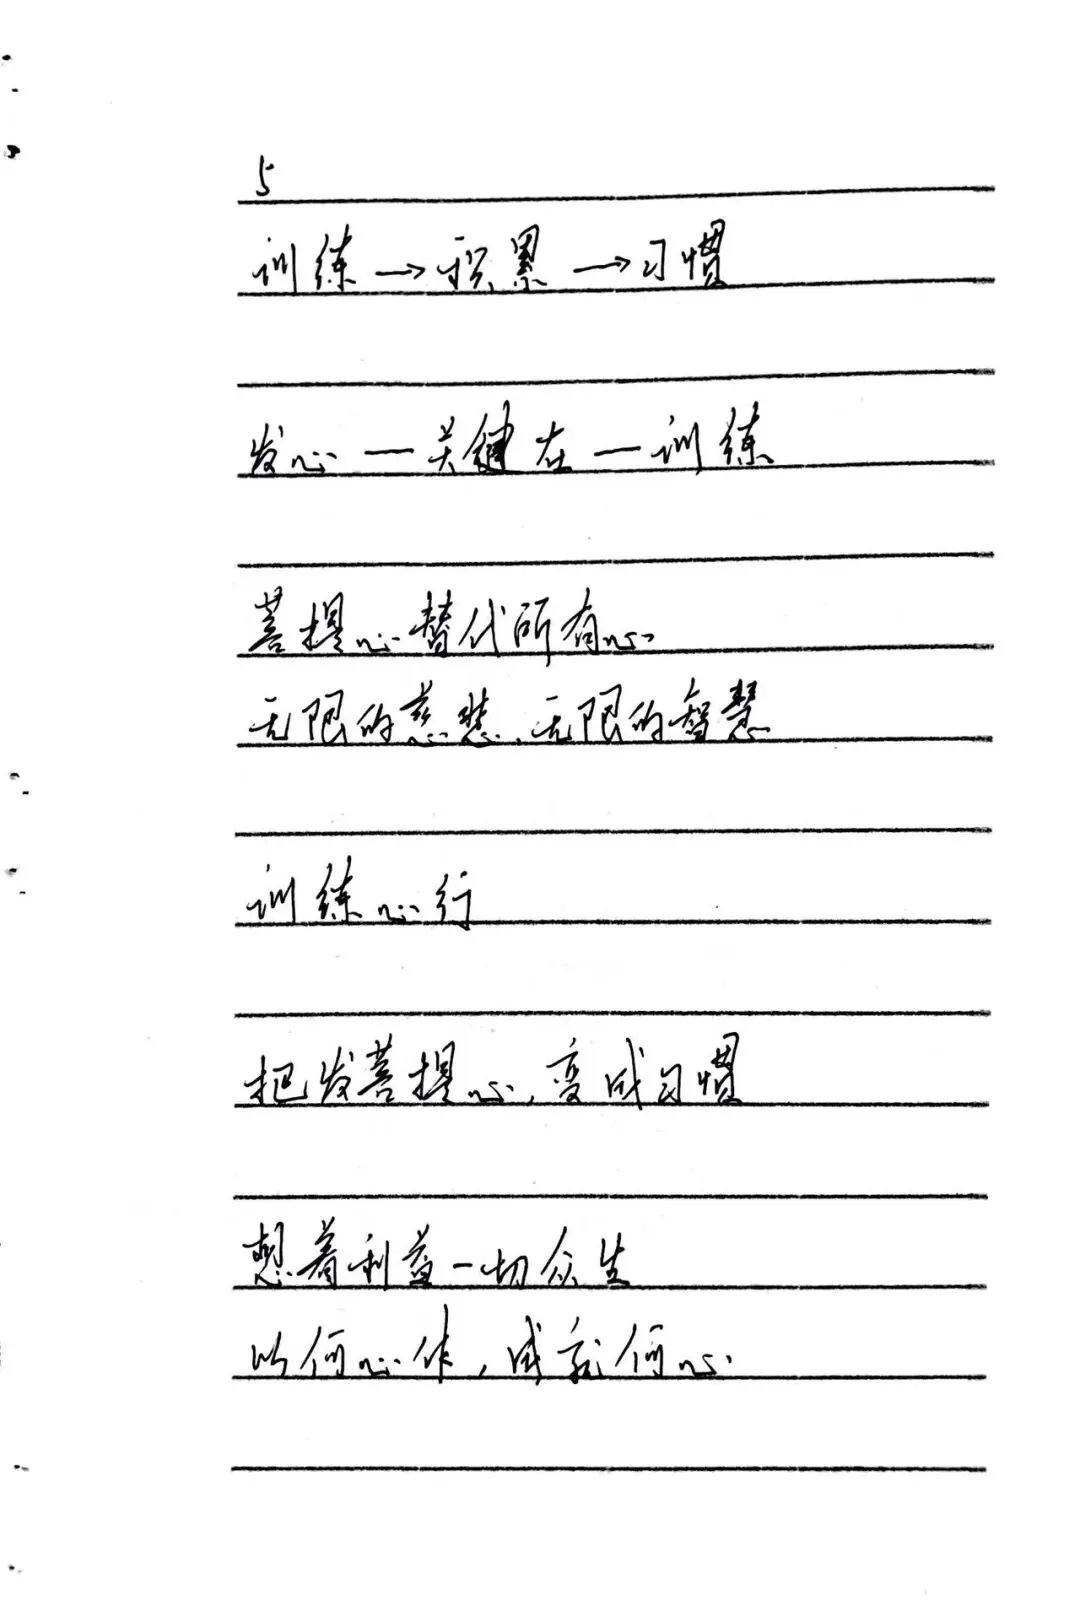 5
训练→积累→习惯
发心—关键在—训练
菩提心替代所有心
无限的慈悲、无限的智慧
训练心行
把发菩提心,变成习惯
想着利益一切众生
以何心作,成就何心